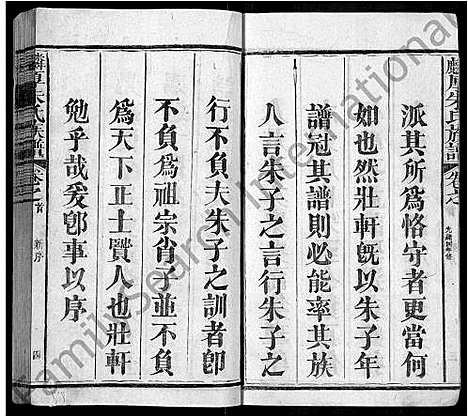 麟厚朱氏族譜
卷之
派其所為恪守者更當何
如也然壯軒既以朱子年
譜冠其譜則必能率其族
人言朱子之言行朱子之
行不負夫朱子之訓者卽
不負為祖宗肖子並不負
為天下正士賢人也壯軒
勉乎哉爰卽事以序
朱氏族譜
卷之首
新序
四
FamilySearch International